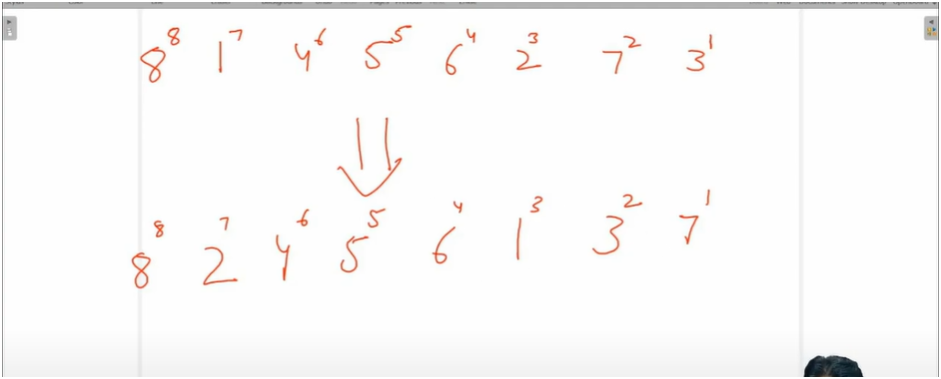 8⁸ 1⁷ 4⁶ 5⁵ 6⁴ 2³ 7² 3¹
8⁸ 2⁷ 4⁶ 5⁵ 6⁴ 1³ 3² 7¹